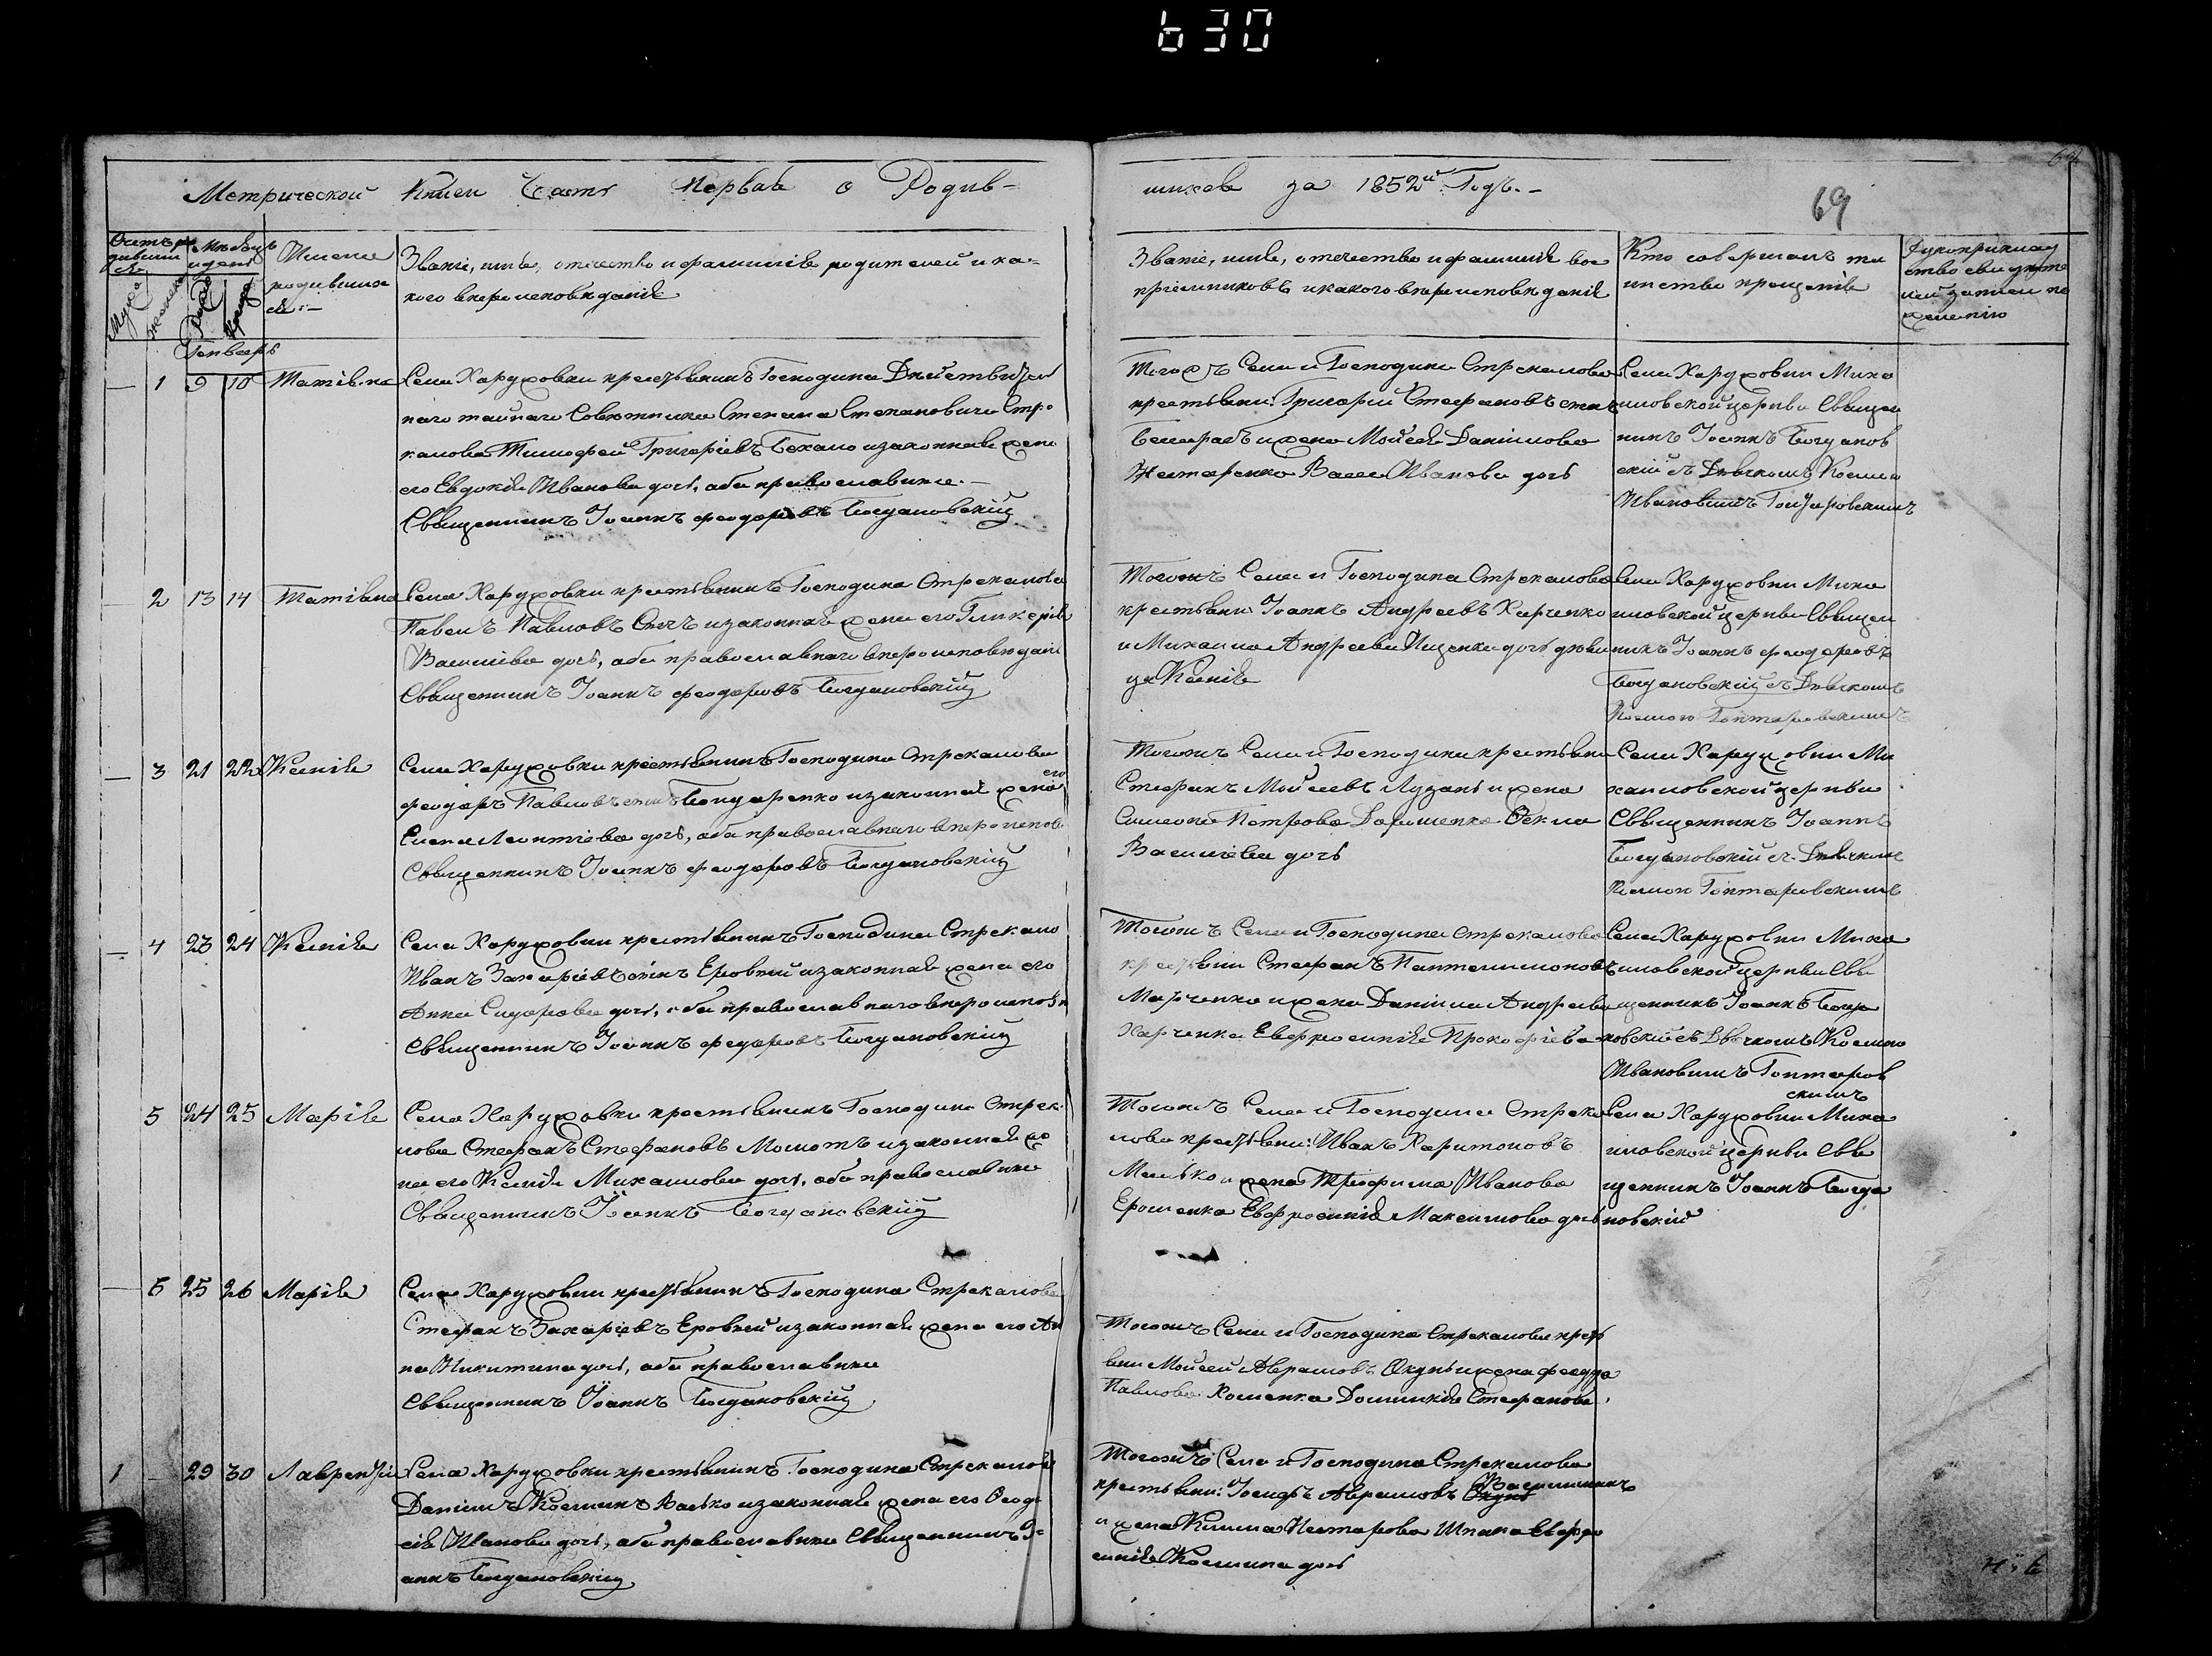 630
Метрической Книги Часть Первая о Родив-
шихся за 1852й Годъ.-
69
Счетъ ро
дивших
ся
Мѣсяцъ
и день
Мужеска
женска
Рожд
Крещен
Имена
родивших
ся:-
Званіе, имя, отечество и фамилія родителей и ка-
кого вѣроисповѣданія
Званіе, имя, отечество и фамилія вос
пріемниковъ и какого вѣроисповѣданія
Кто совершалъ та
инство крещенія
Рукоприклад
ство свидѣте
лей записи по
желанію
Генварь
1 9 10 Татіана
Села Хардховки крестьянинъ Господина Дѣйствитель
наго тайнаго Совѣтника Степана Степановича Стре
калова Тимофей Григоріевъ Бекало и законная жена
его Евдокія Иванова дочь, оба православные.-
Священникъ Іоаннъ Феодоровъ Богдановскій
Тогожъ Села и Господина Стрекалова
крестьяни: Григорій Стефановъ сынъ
и жена Мойсея Даніилова
Нестеренко Васса Иванова дочь
Села Хардховки Миха
иловской церкви Священ
никъ Іоаннъ Богданов
скій съ Дьячкомъ Космою
Ивановымъ Гонтаровскимъ
2 13 14 Татіана
Села Хардховки крестьянинъ Господина Стрекалова
Павелъ Павловъ Отчъ и законная жена его Гликерія
Василіева дочь, оба православнаго вѣроисповѣдані
Священникъ Іоаннъ Феодоровъ Богдановскій
Тогожъ Села и Господина Стрекалова
крестьяни: Іоаннъ Андреевъ Харченко
и Михаила Андреева Ищенка дочь дѣви
ца Ксенія
Села Хардховки Миха
иловской церкви Священ
никъ Іоаннъ Феодоровъ
Богдановскій съ Дьячкомъ
Космою Гонтаровскимъ
3 21 22 Ксенія
Села Хардховки крестьянинъ Господина Стрекалова
Феодоръ Павловъ сынъ Бондаренко и законная жена его
Елена Леонтіева дочь, оба православнаго вѣроиспов
Священникъ Іоаннъ Феодоровъ Богдановскій
Тогожъ Села и Господина крестьяни
Стефанъ Мойсеевъ Лузанъ и жена
Симеона Петрова Дорошенка Фекла
Василіева дочь
Села Хардховки Ми
хаиловской церкви
Священникъ Іоаннъ
Богдановскій съ Дьячкомъ
Космою Гонтаровскимъ
4 23 24 Ксенія
Села Хардховки крестьянинъ Господина Стрекало
Иванъ Захаріевъ сынъ Еровный и законная жена его
Анна Сидорова дочь, оба православнаго вѣроисповѣ
Священникъ Іоаннъ Федоровъ Богдановскій
Тогожъ Села и Господина Стрекалова
крестьяни Стефанъ Пантелимоновъ
Марченко и жена Даніила Андреева
Харченка Евфросинія Прокофіева
Села Хардховки Миха
иловской церкви Свя
щенникъ Іоаннъ Богда
новскій съ Дьячкомъ Космою
Ивановымъ Гонтаров
скимъ
5 24 25 Марія
Села Хардховки крестьянинъ Господина Стрека
лова Стефанъ Стефановъ Момотъ и законная же
на его Ксенія Михаилова дочь, оба православные
Священникъ Іоаннъ Богдановскій
Тогожъ Села и Господина Стрека
лова крестьяни: Иванъ Харитоновъ
Малько и жена Трофима Иванова
Ерошенка Евфросинія Максимова дочь
Села Хардховки Миха
иловской церкви Свя
щенникъ Іоаннъ Богда
новскій
6 25 26 Марія
Села Хардховки крестьянинъ Господина Стрекалова
Стефанъ Захаріевъ Еровный и законная жена его Ан
на Никитина дочь, оба православные
Священникъ Іоаннъ Богдановскій
Тогожъ Села и Господина Стрекалова кресть
яни Мойсей Аврамовъ Окунь и жена Феодора
Павлова Хоменка Домникія Стефанова
1 29 30 Лаврентій
Села Хардховки крестьянинъ Господина Стрекалова
Даніилъ Косминъ Васько и законная жена его Феодо
сія Иванова дочь, оба православные Священникъ Іо-
аннъ Богдановскій
Тогожъ Села и Господина Стрекалова
крестьяни: Іосифъ Аврамовъ Окунь
и жена Климa Нестерова Шпака Евфро
синія Космина дочь